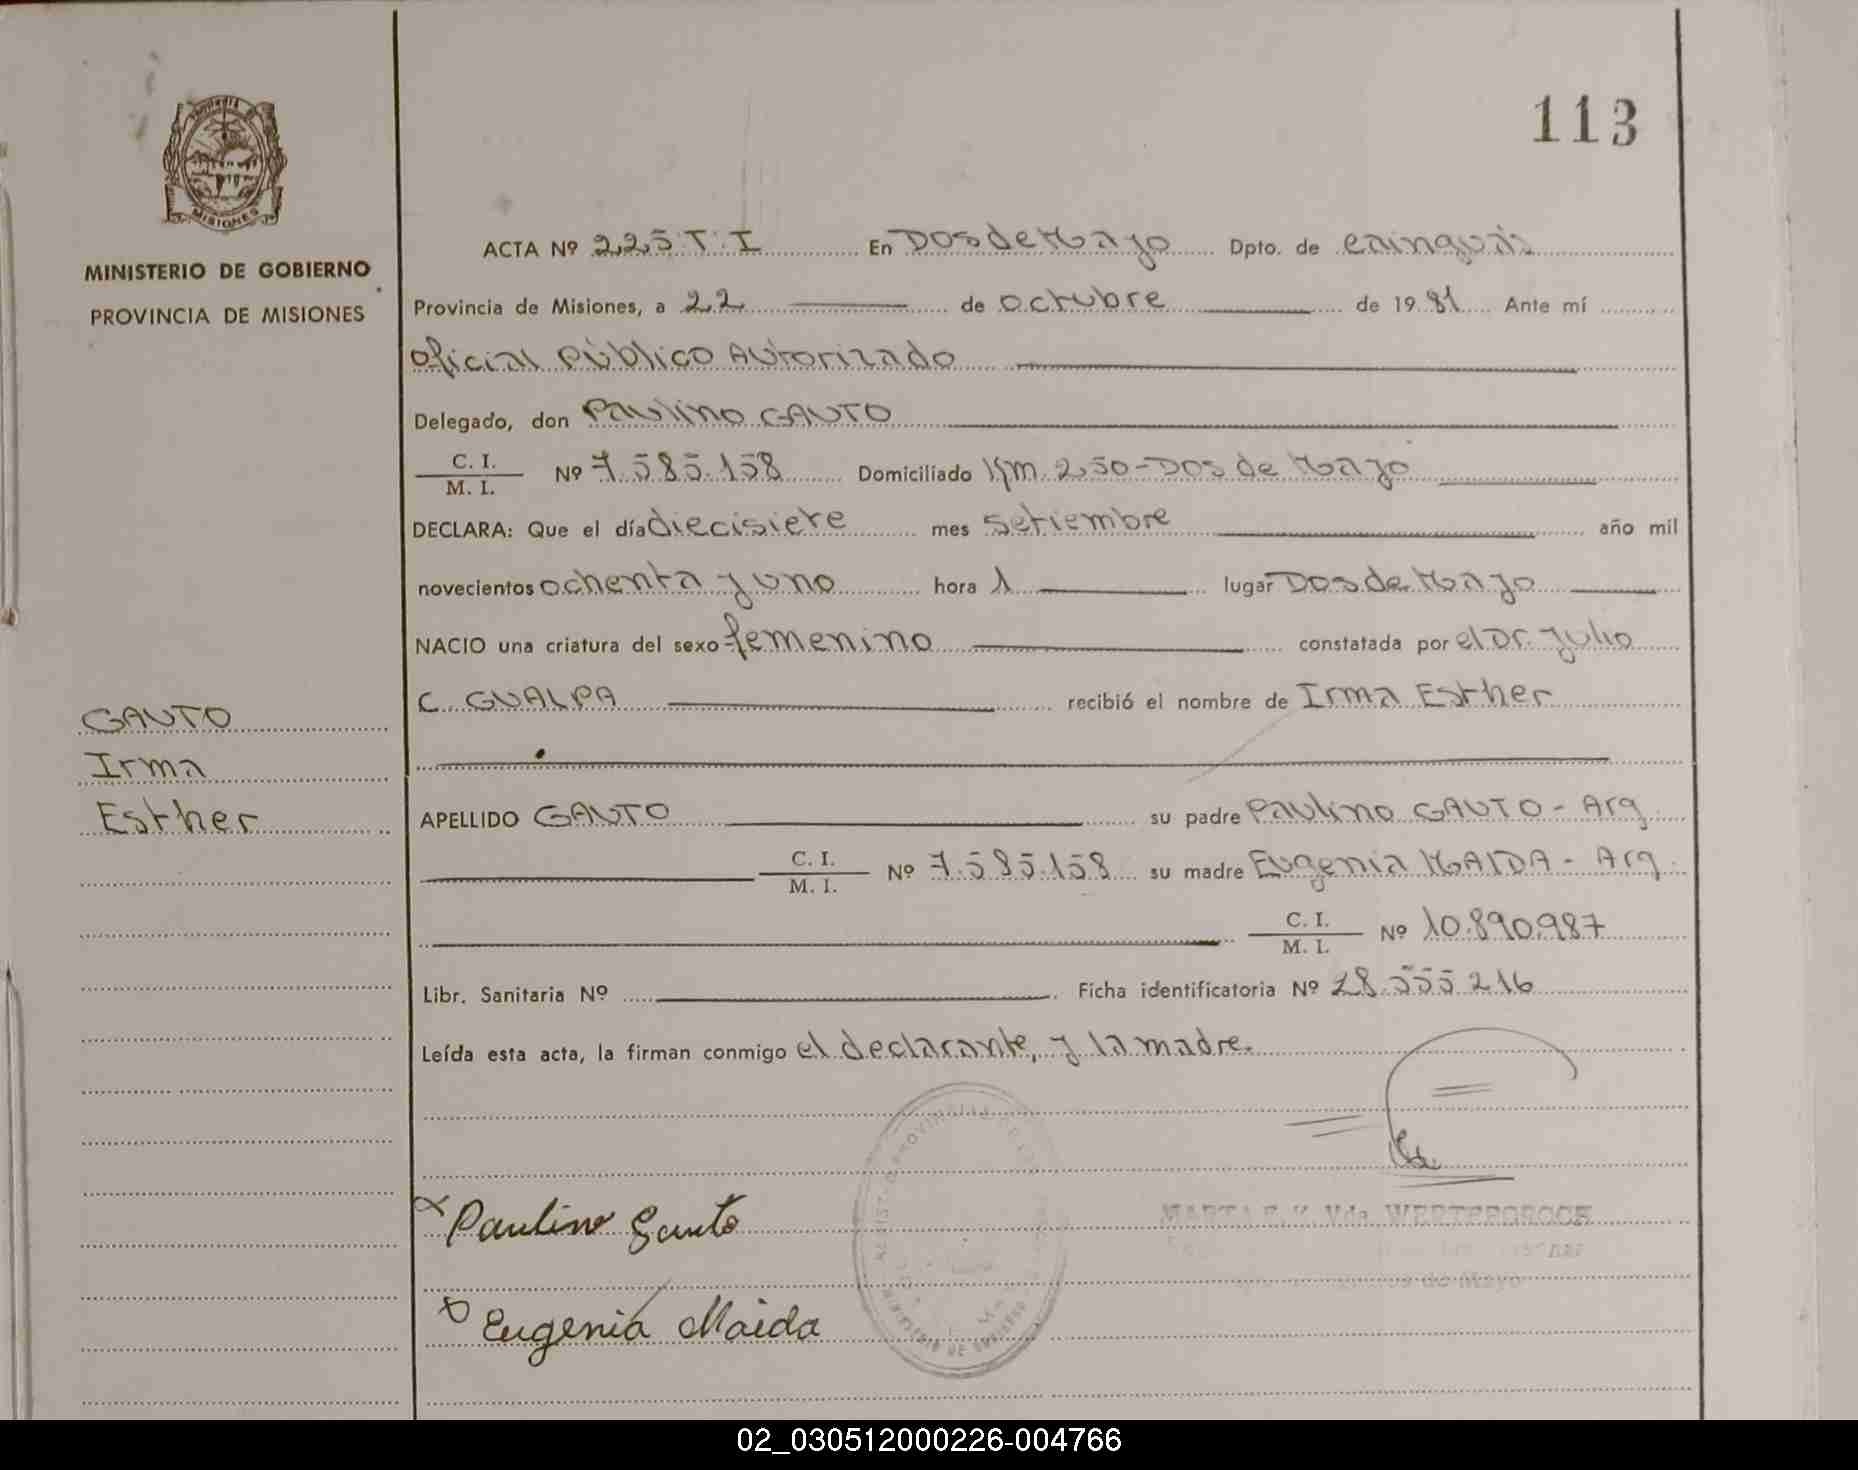 113
MISIONES
MINISTERIO DE GOBIERNO
PROVINCIA DE MISIONES
GAUTO
Irma
Esther
ACTA Nº 225 T: I En Dos de Mayo Dpto. de Cainguás
Provincia de Misiones, a 22 de octubre de 1981 Ante mí
Oficial Público Autorizado
Delegado, don Paulino GAUTO
C. I.
M. I. Nº 7.585.158 Domiciliado Km. 250-Dos de Mayo
DECLARA: Que el día diecisiete mes setiembre año mil
novecientos ochenta y uno hora 1 lugar Dos de Mayo
NACIO una criatura del sexo femenino constatada por el Dr. Julio
C. GUALPA recibió el nombre de Irma Esther
APELLIDO GAUTO su padre Paulino GAUTO - Arg.
C. I.
M. I. Nº 7.585.158 su madre Eugenia MAIDA - Arg.
C. I.
M. I. Nº 10.890.987
Libr. Sanitaria Nº Ficha identificatoria Nº 28.555.216
Leída esta acta, la firman conmigo el declarante, y la madre.
Paulino Gauto
MARTA E. K. Vda.
de Mayo
Eugenia Maida
MINISTERIO DE GOBIERNO
02_030512000226-004766